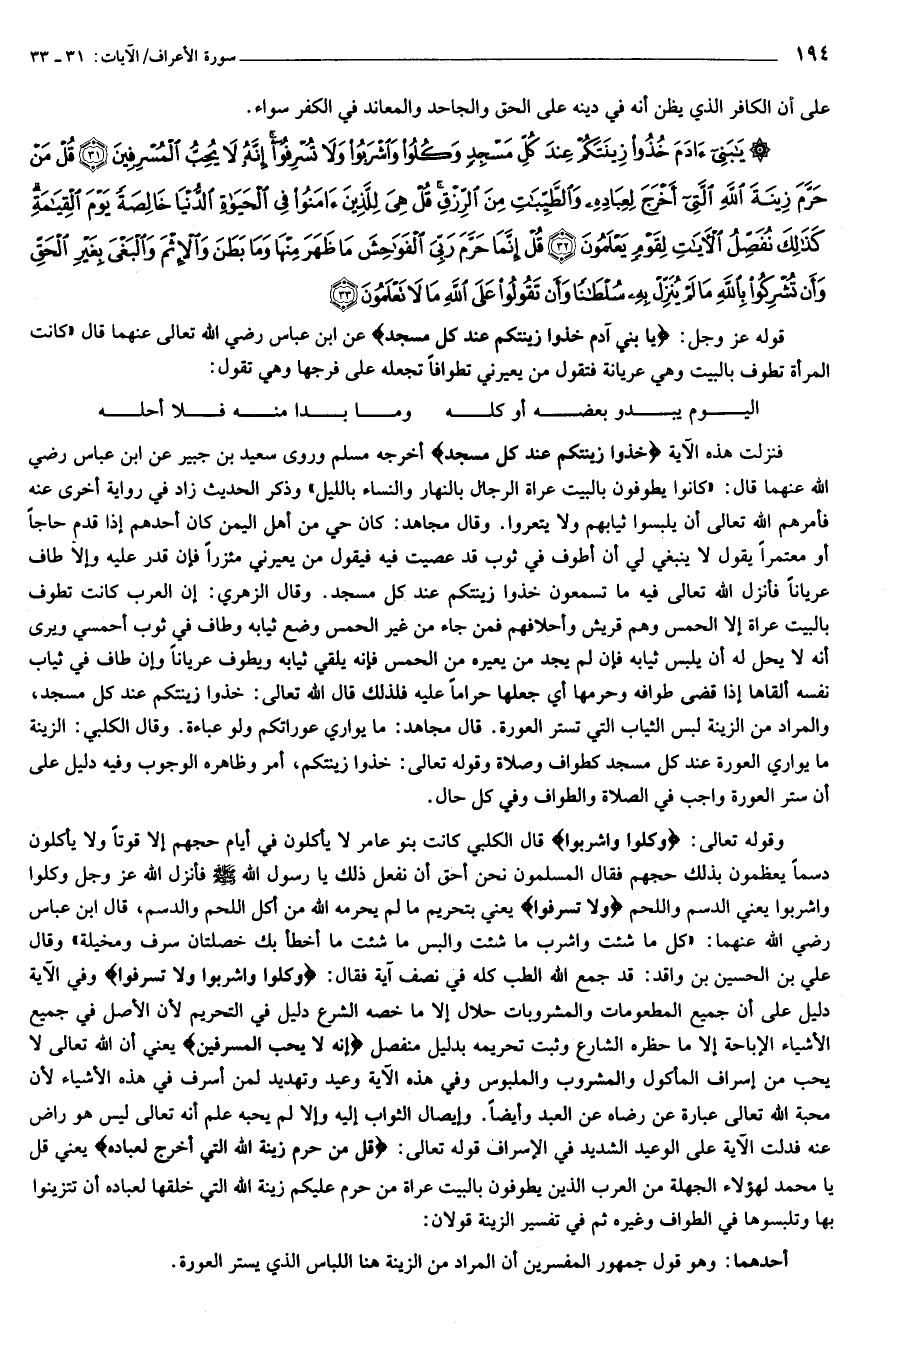 ١٩٤ ــــــــــــــــــــــــــــــــــــــــ سورة الأعراف/ الآيات: ٣١ ـ ٣٣
على أن الكافر الذي يظن أنه في دينه على الحق والجاحد والمعاند في الكفر سواء.
۞ يَٰبَنِىٓ ءَادَمَ خُذُوا۟ زِينَتَكُمْ عِندَ كُلِّ مَسْجِدٍ وَكُلُوا۟ وَٱشْرَبُوا۟ وَلَا تُسْرِفُوٓا۟ ۚ إِنَّهُۥ لَا يُحِبُّ ٱلْمُسْرِفِينَ ﴿٣١﴾ قُلْ مَنْ
حَرَّمَ زِينَةَ ٱللَّهِ ٱلَّتِىٓ أَخْرَجَ لِعِبَادِهِۦ وَٱلطَّيِّبَٰتِ مِنَ ٱلرِّزْقِ ۚ قُلْ هِىَ لِلَّذِينَ ءَامَنُوا۟ فِى ٱلْحَيَوٰةِ ٱلدُّنْيَا خَالِصَةً يَوْمَ ٱلْقِيَٰمَةِ ۗ
كَذَٰلِكَ نُفَصِّلُ ٱلْءَايَٰتِ لِقَوْمٍ يَعْلَمُونَ ﴿٣٢﴾ قُلْ إِنَّمَا حَرَّمَ رَبِّىَ ٱلْفَوَٰحِشَ مَا ظَهَرَ مِنْهَا وَمَا بَطَنَ وَٱلْإِثْمَ وَٱلْبَغْىَ بِغَيْرِ ٱلْحَقِّ
وَأَن تُشْرِكُوا۟ بِٱللَّهِ مَا لَمْ يُنَزِّلْ بِهِۦ سُلْطَٰنًا وَأَن تَقُولُوا۟ عَلَى ٱللَّهِ مَا لَا تَعْلَمُونَ ﴿٣٣﴾
قوله عز وجل: ﴿يا بني آدم خذوا زينتكم عند كل مسجد﴾ عن ابن عباس رضي الله تعالى عنهما قال «كانت
المرأة تطوف بالبيت وهي عريانة فتقول من يعيرني تطوافاً تجعله على فرجها وهي تقول:
اليـــوم يبـــدو بعضـــه أو كلـــه    ومـــا بـــدا منـــه فـــلا أحلـــه
فنزلت هذه الآية ﴿خذوا زينتكم عند كل مسجد﴾ أخرجه مسلم وروى سعيد بن جبير عن ابن عباس رضي
الله عنهما قال: «كانوا يطوفون بالبيت عراة الرجال بالنهار والنساء بالليل» وذكر الحديث زاد في رواية أخرى عنه
فأمرهم الله تعالى أن يلبسوا ثيابهم ولا يتعروا. وقال مجاهد: كان حي من أهل اليمن كان أحدهم إذا قدم حاجاً
أو معتمراً يقول لا ينبغي لي أن أطوف في ثوب قد عصيت فيه فيقول من يعيرني مئزراً فإن قدر عليه وإلا طاف
عرياناً فأنزل الله تعالى فيه ما تسمعون خذوا زينتكم عند كل مسجد. وقال الزهري: إن العرب كانت تطوف
بالبيت عراة إلا الحمس وهم قريش وأحلافهم فمن جاء من غير الحمس وضع ثيابه وطاف في ثوب أحمسي ويرى
أنه لا يحل له أن يلبس ثيابه فإن لم يجد من يعيره من الحمس فإنه يلقي ثيابه ويطوف عرياناً وإن طاف في ثياب
نفسه ألقاها إذا قضى طوافه وحرمها أي جعلها حراماً عليه فلذلك قال الله تعالى: خذوا زينتكم عند كل مسجد،
والمراد من الزينة لبس الثياب التي تستر العورة. قال مجاهد: ما يواري عوراتكم ولو عباءة. وقال الكلبي: الزينة
ما يواري العورة عند كل مسجد كطواف وصلاة وقوله تعالى: خذوا زينتكم، أمر وظاهره الوجوب وفيه دليل على
أن ستر العورة واجب في الصلاة والطواف وفي كل حال.
وقوله تعالى: ﴿وكلوا واشربوا﴾ قال الكلبي كانت بنو عامر لا يأكلون في أيام حجهم إلا قوتاً ولا يأكلون
دسماً يعظمون بذلك حجهم فقال المسلمون نحن أحق أن نفعل ذلك يا رسول الله ﷺ فأنزل الله عز وجل وكلوا
واشربوا يعني الدسم واللحم ﴿ولا تسرفوا﴾ يعني بتحريم ما لم يحرمه الله من أكل اللحم والدسم، قال ابن عباس
رضي الله عنهما: «كل ما شئت واشرب ما شئت والبس ما شئت ما أخطأ بك خصلتان سرف ومخيلة» وقال
علي بن الحسين بن واقد: قد جمع الله الطب كله في نصف آية فقال: ﴿وكلوا واشربوا ولا تسرفوا﴾ وفي الآية
دليل على أن جميع المطعومات والمشروبات حلال إلا ما خصه الشرع دليل في التحريم لأن الأصل في جميع
الأشياء الإباحة إلا ما حظره الشارع وثبت تحريمه بدليل منفصل ﴿إنه لا يحب المسرفين﴾ يعني أن الله تعالى لا
يحب من إسراف المأكول والمشروب والملبوس وفي هذه الآية وعيد وتهديد لمن أسرف في هذه الأشياء لأن
محبة الله تعالى عبارة عن رضاه عن العبد وأيضاً. وإيصال الثواب إليه وإلا لم يحبه علم أنه تعالى ليس هو راض
عنه فدلت الآية على الوعيد الشديد في الإسراف قوله تعالى: ﴿قل من حرم زينة الله التي أخرج لعباده﴾ يعني قل
يا محمد لهؤلاء الجهلة من العرب الذين يطوفون بالبيت عراة من حرم عليكم زينة الله التي خلقها لعباده أن تتزينوا
بها وتلبسوها في الطواف وغيره ثم في تفسير الزينة قولان:
أحدهما: وهو قول جمهور المفسرين أن المراد من الزينة هنا اللباس الذي يستر العورة.